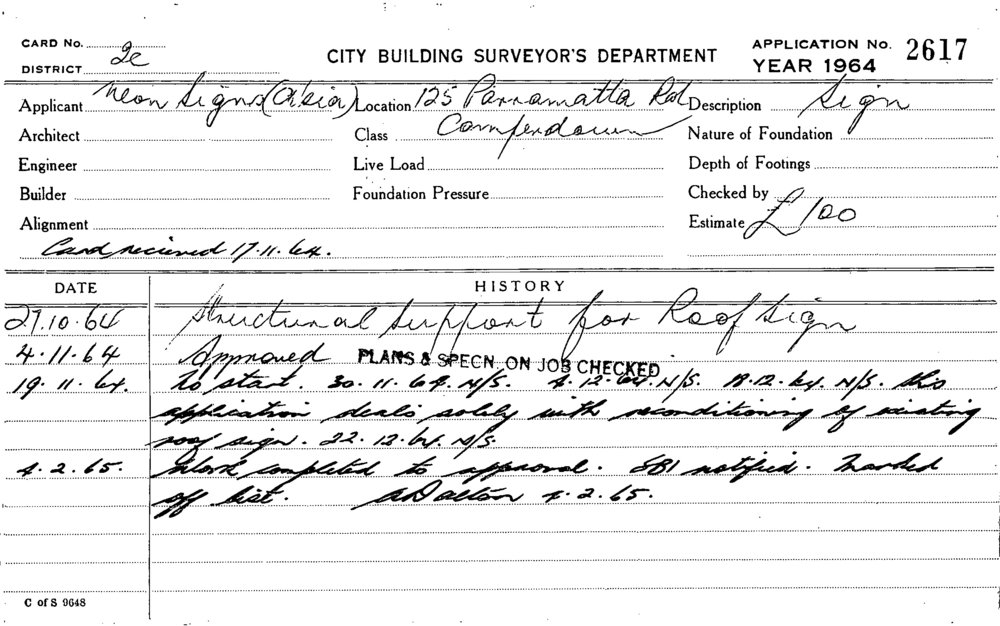 CARD No.
CITY BUILDING SURVEYOR'S DEPARTMENT
APPLICATION No. 2617
DISTRICT 2c
YEAR 1964
Applicant Neon Signs (A'sia) Location 125 Parramatta Rd Description Sign
Architect Class Camperdown Nature of Foundation
Engineer Live Load Depth of Footings
Builder Foundation Pressure Checked by
Alignment Estimate £100
Card recieved 17.11.64.
DATE HISTORY
27.10.64 Structural Support for Roof Sign
4.11.64 Approved PLANS & SPECN. ON JOB CHECKED
19.11.64. No start. 30.11.64. N/S. 4.12.64. N/S. 18.12.64. N/S. this
application deals solely with reconditioning of existing
roof sign. 22.12.64. N/S.
4.2.65. Work completed to approval. SBI notified. Marked
off list. A Dalton 4.2.65.
C of S 9648